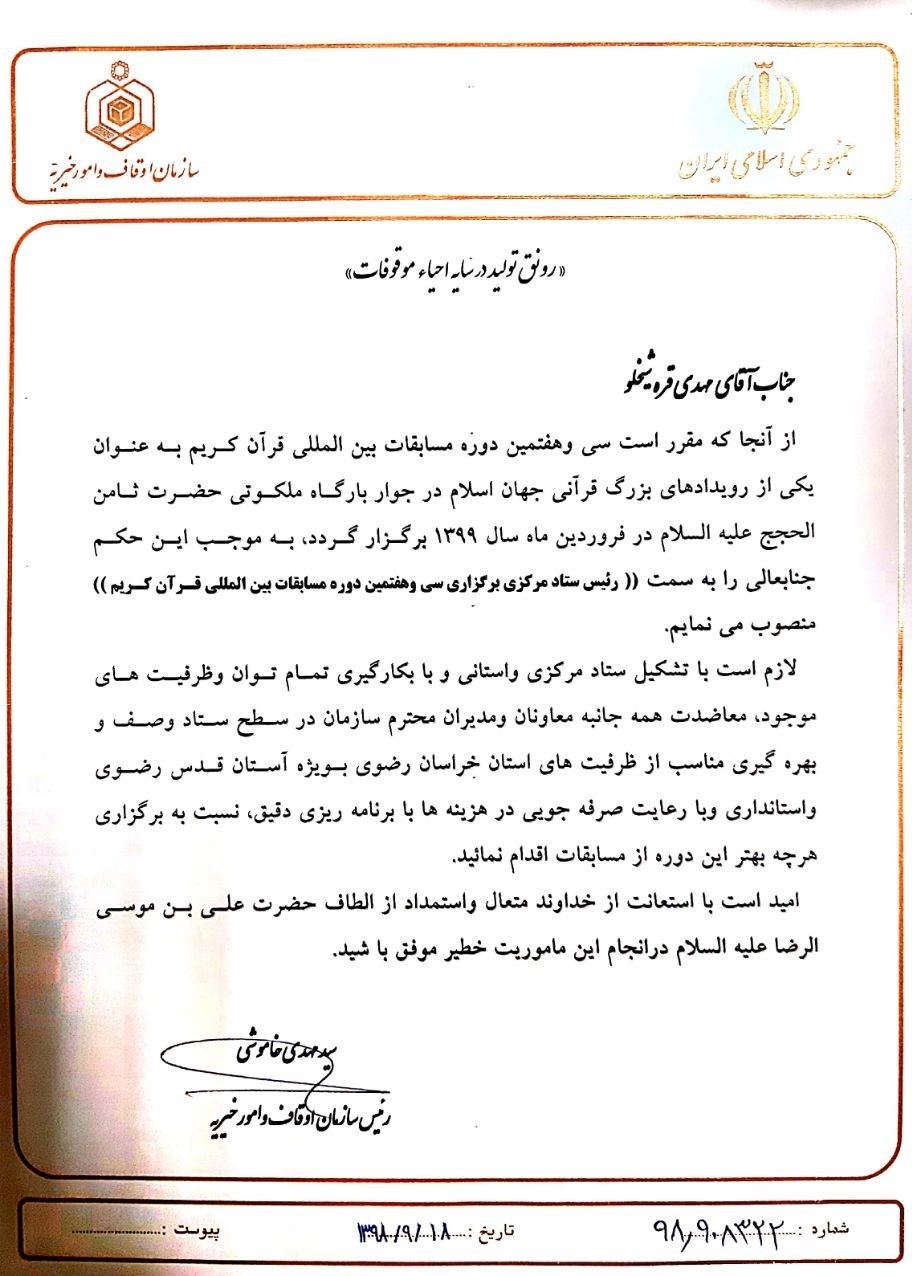 جمهوری اسلامی ایران
سازمان اوقاف و امور خیریه
«رونق تولید در سایه احیاء موقوفات»
جناب آقای مهدی قره شیخلو
از آنجا که مقرر است سی وهفتمین دوره مسابقات بین المللی قرآن کریم به عنوان
یکی از رویدادهای بزرگ قرآنی جهان اسلام در جوار بارگاه ملکوتی حضرت ثامن
الحجج علیه السلام در فروردین ماه سال ۱۳۹۹ برگزار گردد، به موجب این حکم
جنابعالی را به سمت (( رئیس ستاد مرکزی برگزاری سی وهفتمین دوره مسابقات بین المللی قرآن کریم ))
منصوب می نمایم.
لازم است با تشکیل ستاد مرکزی واستانی و با بکارگیری تمام توان وظرفیت های
موجود، معاضدت همه جانبه معاونان ومدیران محترم سازمان در سطح ستاد وصف و
بهره گیری مناسب از ظرفیت های استان خراسان رضوی بویژه آستان قدس رضوی
واستانداری وبا رعایت صرفه جویی در هزینه ها با برنامه ریزی دقیق، نسبت به برگزاری
هرچه بهتر این دوره از مسابقات اقدام نمائید.
امید است با استعانت از خداوند متعال واستمداد از الطاف حضرت علی بن موسی
الرضا علیه السلام درانجام این ماموریت خطیر موفق با شید.
سید مهدی خاموشی
رئیس سازمان اوقاف و امور خیریه
شماره : ۹۸٫۹۰۸۳۲۲
تاریخ : ۱۳۹۸/۹/۱۸
پیوست :